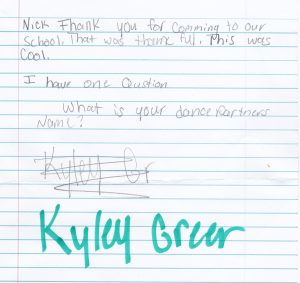 Nick Thank you for comming to our
School. That was thankful. This was
Cool.
I have one Qustion
What is your dance Partners
Name?
Kyley Gr
Kyley Greer